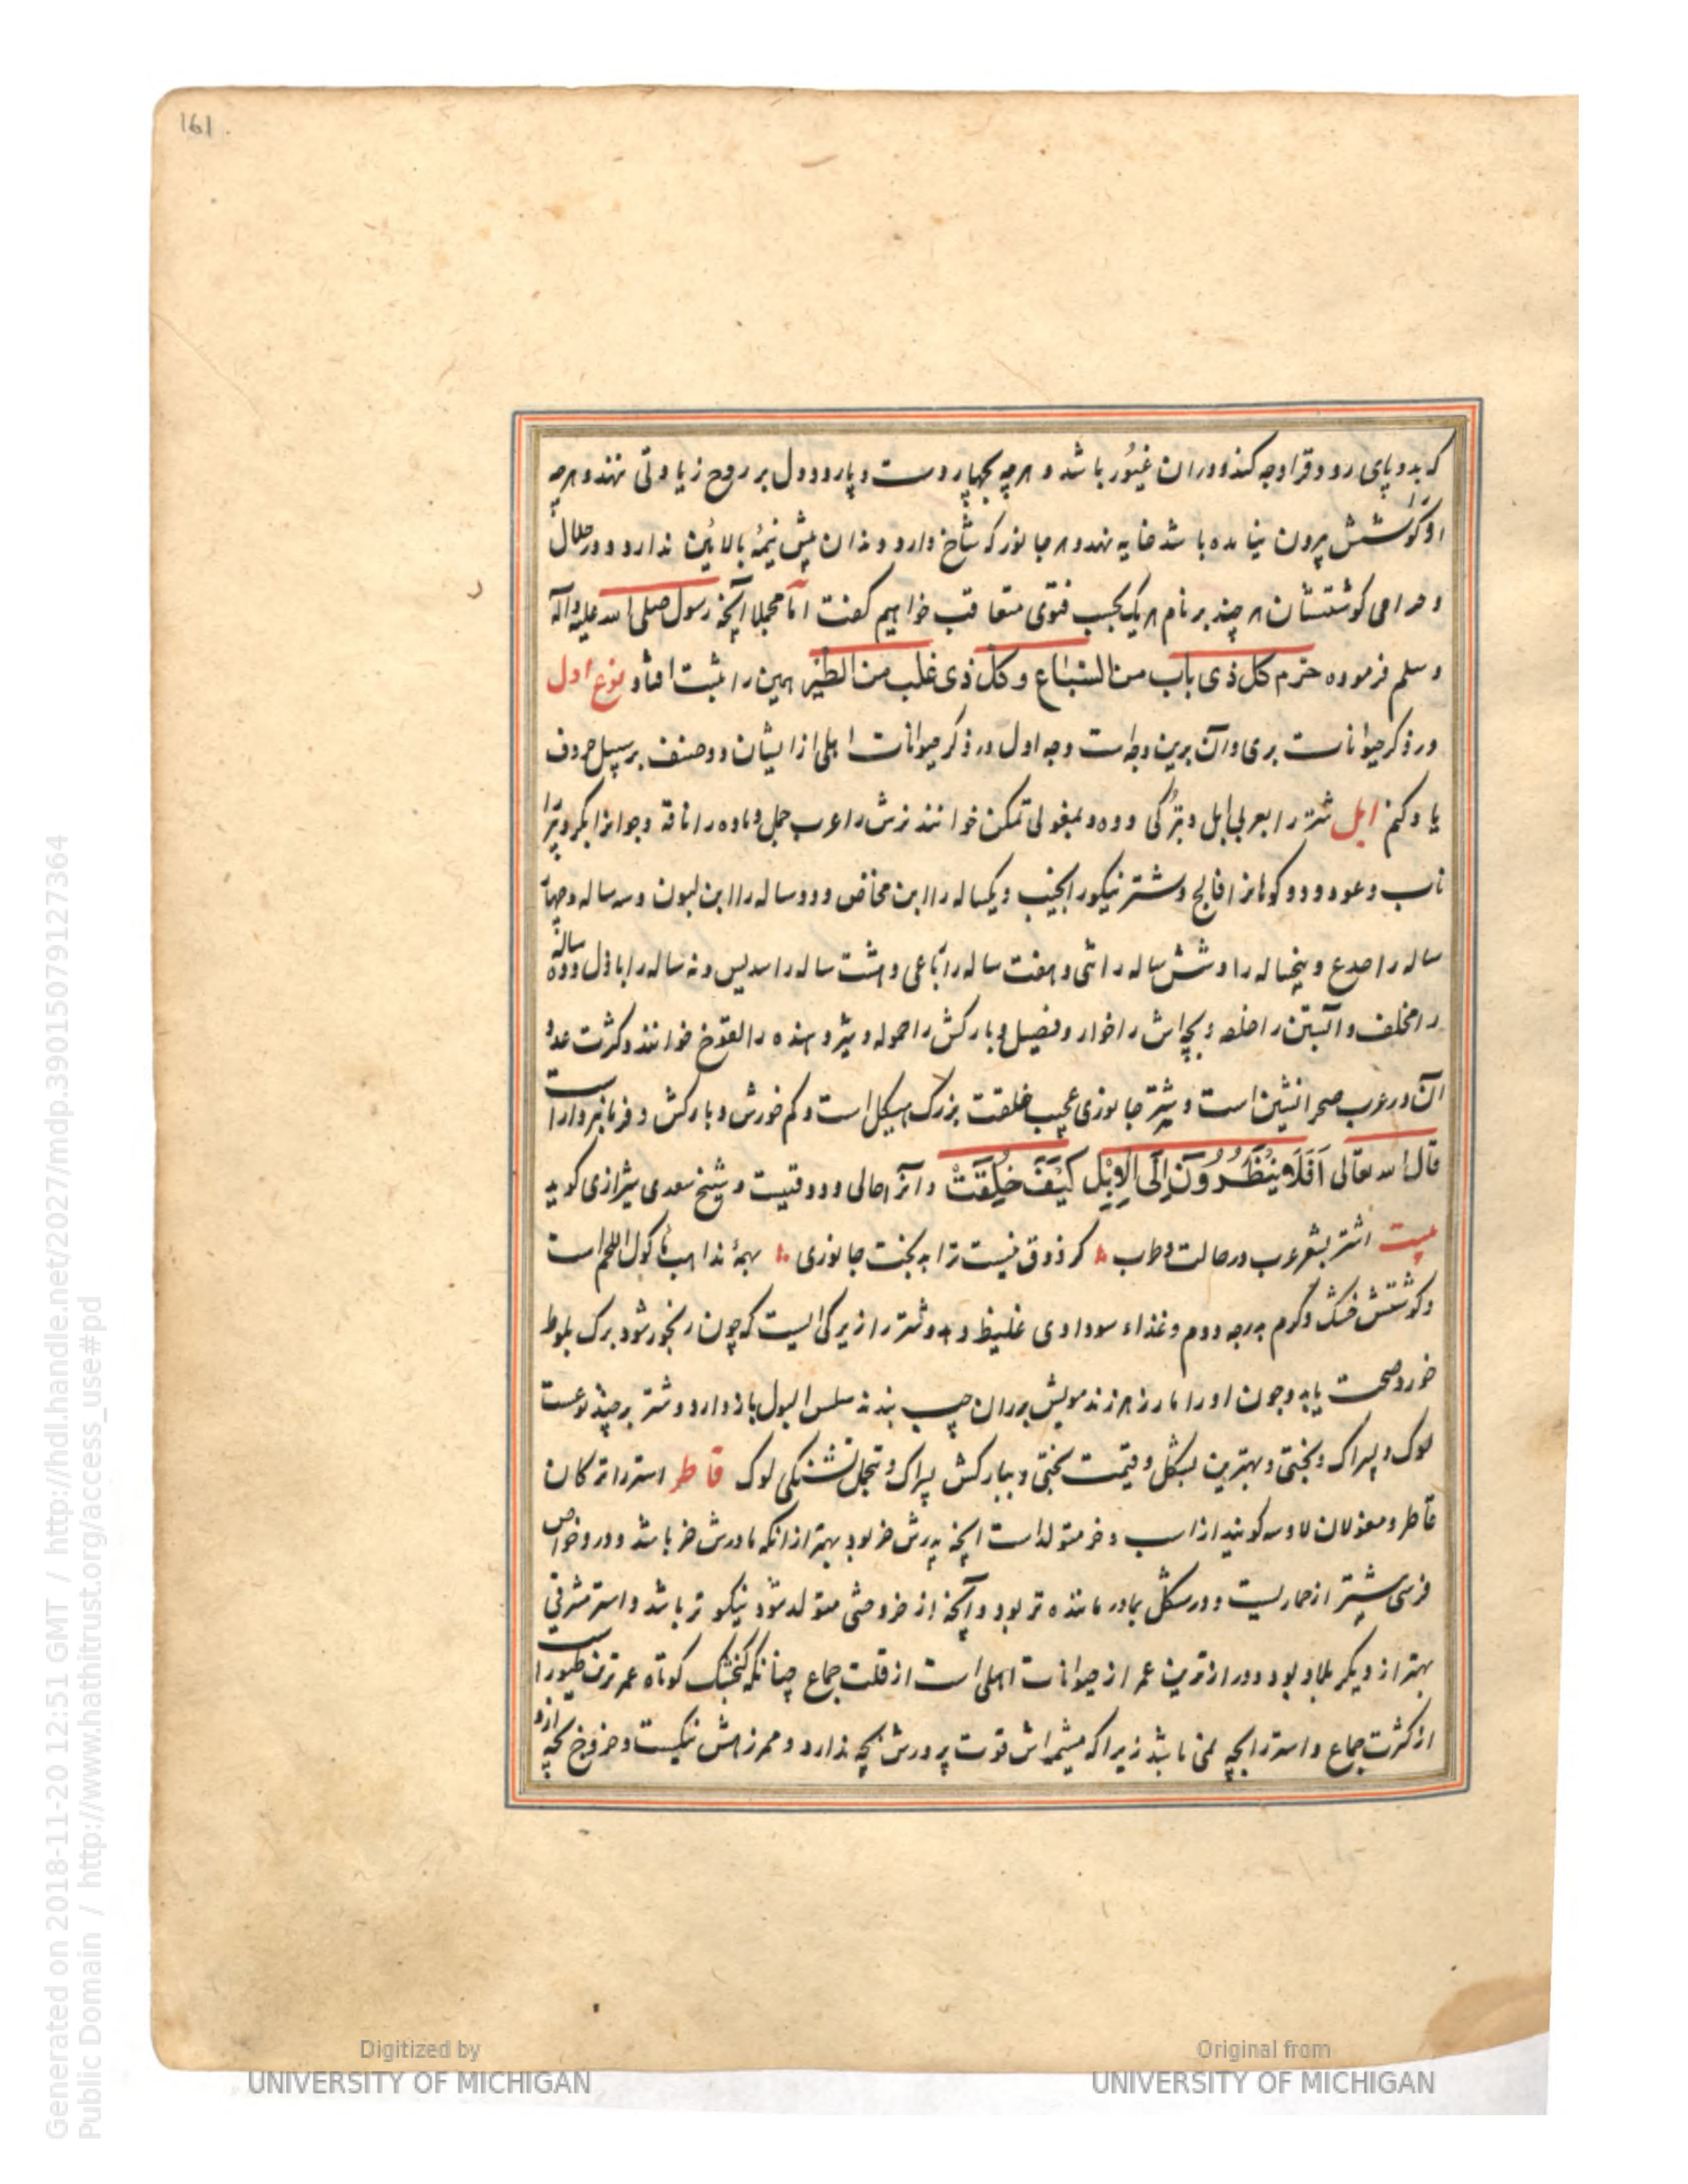 161
که بدو پای رود و قراوجه کند و دران غیور باشد و هرچه بچهار دست و پا رود و دل بر روح زیادتی نهند و هرچه
او گوشش بیرون نیامده باشد خایه نهد و هر جانور که شاخ دارد دندان پیش نیمهٔ بالائین ندارد و در حلال
و حرامی گوشتشان هر چند بر نام هر یک بحسب فتوی متعاقب خواهیم گفت اما مجملا آنچه رسول صلی الله علیه وآله
و سلم فرموده حرم کل ذی ناب من السباع و کل ذی مخلب من الطیر همین را ثبت افتاد نوع اول
در ذکر حیوانات بری و آن برین وجه است وجه اول در ذکر حیوانات اهلی از ایشان دو صنف بر سبیل حروف
یاد کنم ابل شتر را بعربی ابل و بترکی دوه و بمغولی تمکن خوانند نرش را عرب جمل و ماده را ناقه و جوانرا بکر و پیر را
ناب و عود و دو کوهانرا فالج و شتر نیکو را نجیب و یکساله را ابن مخاض و دو ساله را ابن لبون و سه ساله و چهار
ساله را جدع و پنجساله را و شش ساله را ثنی و هفت ساله را رباعی و هشت ساله را سدیس و نه ساله را باذل و ده ساله
را مخلف و آبستن را خلفه و بچه‌اش را خوار و فصیل و بارکش را حموله و شیر دهنده را لقوح خوانند و کثرت عدد
آن در عرب صحرانشین است و شتر جانوری عجیب خلقت بزرگ هیکل است و کم خورش و بارکش و فرمانبردار است
قال الله تعالی أفلا ینظرون إلی الإبل کیف خلقت و آنرا حالی و ذوقیست و شیخ سعدی شیرازی گوید
بیت اشتر بشعر عرب در حالت و طرب گر ذوق نیست ترا بد بخت جانوری بهمهٔ مذاهب ماکول اللحم است
و گوشتش خشک و گرم بدرجه دوم و غذاء سوداوی غلیظ دهد و شتر را زیرکی ایست که چون رنجور شود برگ بلوط
خورد صحت یابد و چون او را مار زهر زند مویش بر ران چپ بندند سلس البول باز دارد و شتر بر چند نوعست
لوک و بیراک و بختی و بهترین بشکل و قیمت بختی و ببارکش بیراک و تحمل تشنگی لوک قاطر استر را ترکان
قاطر و مغولان لاوسه گویند از اسب و خر متولد است آنچه پدرش خر بود بهتر از آنکه مادرش خر باشد و در و خواص
فرسی بیشتر از حماریست و در شکل بمادر ماننده تر بود و آنچه از خر وحشی متولد شود نیکوتر باشد و استر مشرقی
بهتر از دیگر بلاد بود و درازترین عمر از حیوانات اهلی است از قلت جماع چنانکه گنجشک کوتاه عمرترین طیور است
از کثرت جماع و استر را بچه نمی باشد زیرا که مشیمه‌اش قوت پرورش بچه ندارد و ممرزهش تنگیست و خروج بچه ازو
Generated on 2018-11-20 12:51 GMT / http://hdl.handle.net/2027/mdp.39015079127364
Public Domain / http://www.hathitrust.org/access_use#pd
Digitized by
UNIVERSITY OF MICHIGAN
Original from
UNIVERSITY OF MICHIGAN